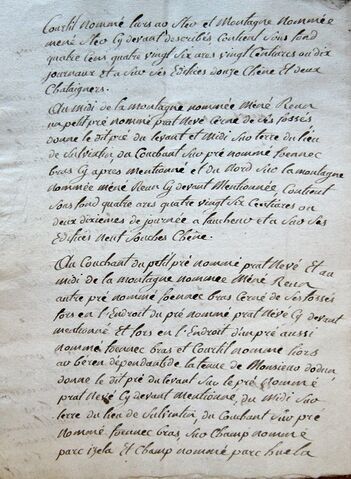 Courtil nommé liors ao Néo et Montagne nommée
mené Néo Cy devant describés Contient sous fond
quatre cens quatre vingt six ares vingt Centiares ou dix
journaux et a sur ses Edifices donze Chêne et deux
Chalaigners.
Au Midi de la montagne nommée Méné Reun
un petit pré nommé prat Nevé Cerné de ses fossés
donne le dit pré du levant et Midi sur terre du lieu
de du Couchant sur pré nommé foennec
bras Cy apres mentionné et du Nord sur la montagne
nommée méné Reun Cy devant Mentionnée, Contient
sous fond quatre ares quatre vingt six Centiares ou
deux dixiemes de journée a faucheur et a sur ses
Edifices neuf souches Chêne.
Au Couchant du petit pré nommé prat Nevé et au
midi de la montagne nommée Méné Reun
autre pré nommé foennec bras Cerné de ses fossés
fors en l'Endroit du pré nommé prat Nevé Cy devant
mentionné et fors en l'Endroit d'un pré aussi
nommé foennec bras et Courtil nommé liors
au dépendants de la tenue de Monsieur
donne le dit pré du levant sur le pré nommé
prat Nevé Cy devant Mentionné, du Midi sur
terre du lieu de du Couchant sur pré
nommé foennec bras, sur Champ nommé
parc izela et Champ nommé parc huela